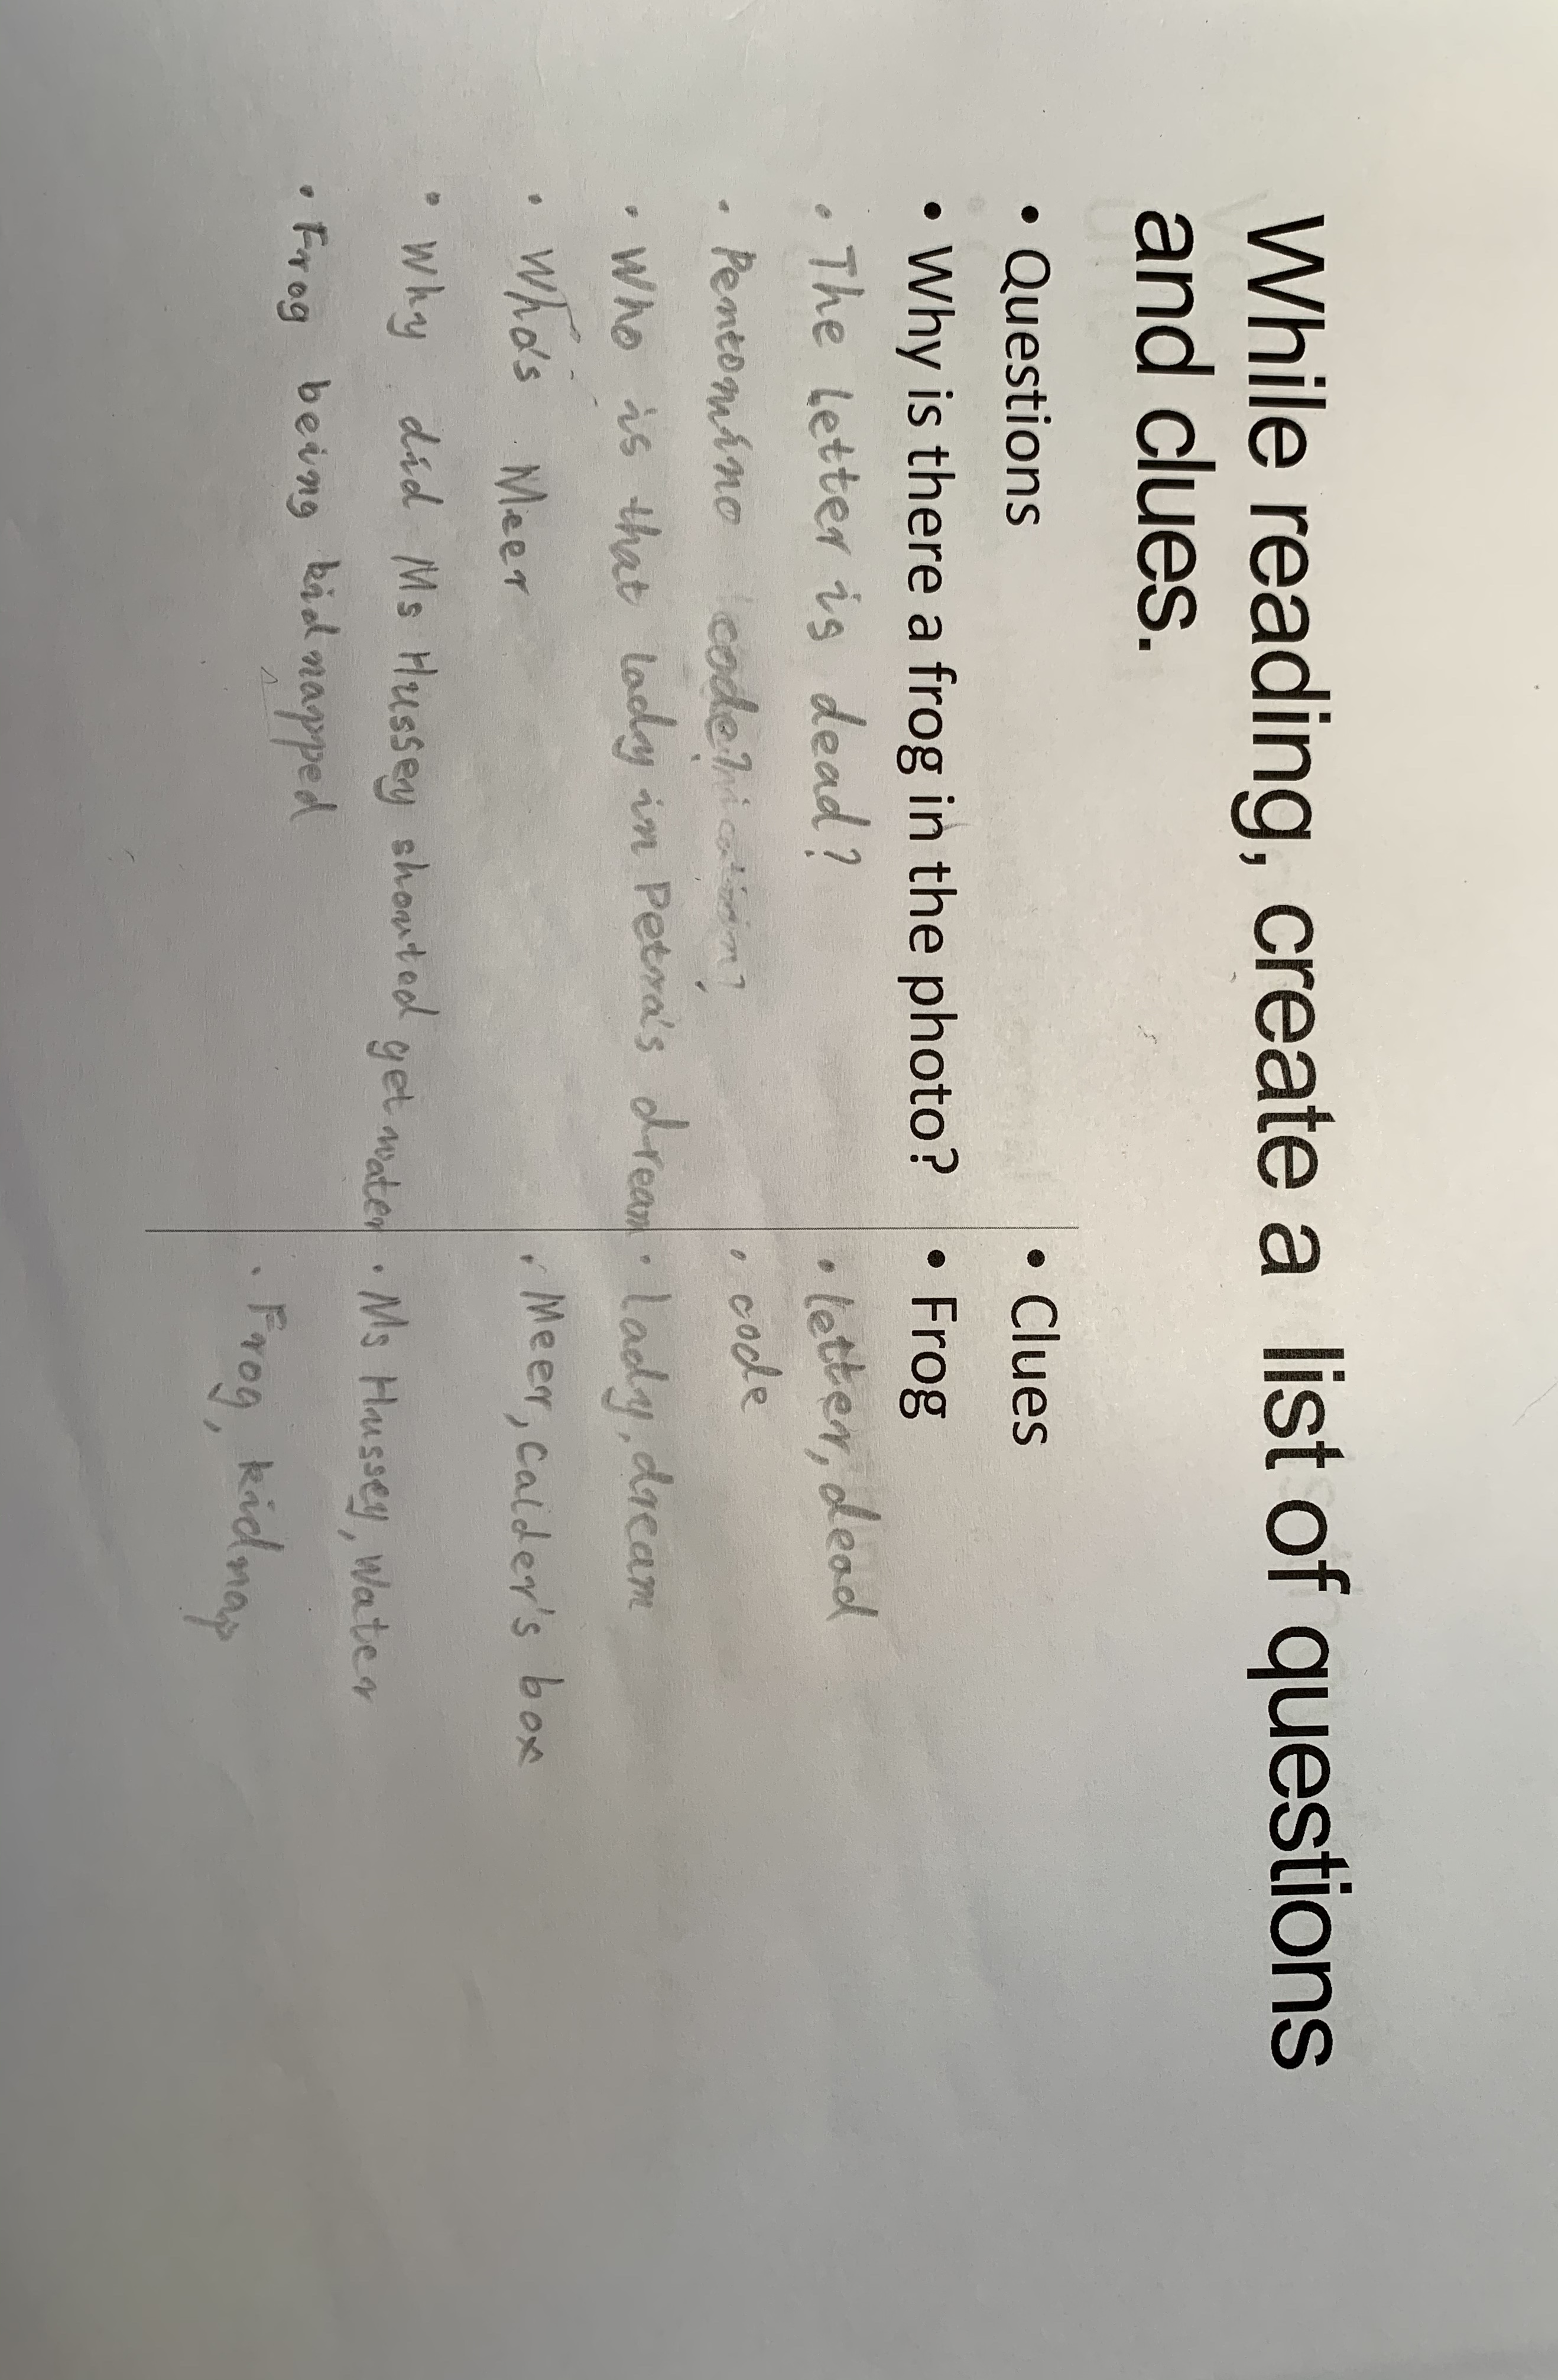 While reading, create a list of questions
and clues.
• Questions
• Why is there a frog in the photo?
• The letter is dead?
• Pentomino code?
• Who is that lady in Petra's dream
• Who's Meer
• Why did Ms Hussey shouted get water
• Frog being kidnapped
• Clues
• Frog
• letter, dead
• code
• lady, dream
• Meer, Calder's box
• Ms Hussey, Water
• Frog, kidnap